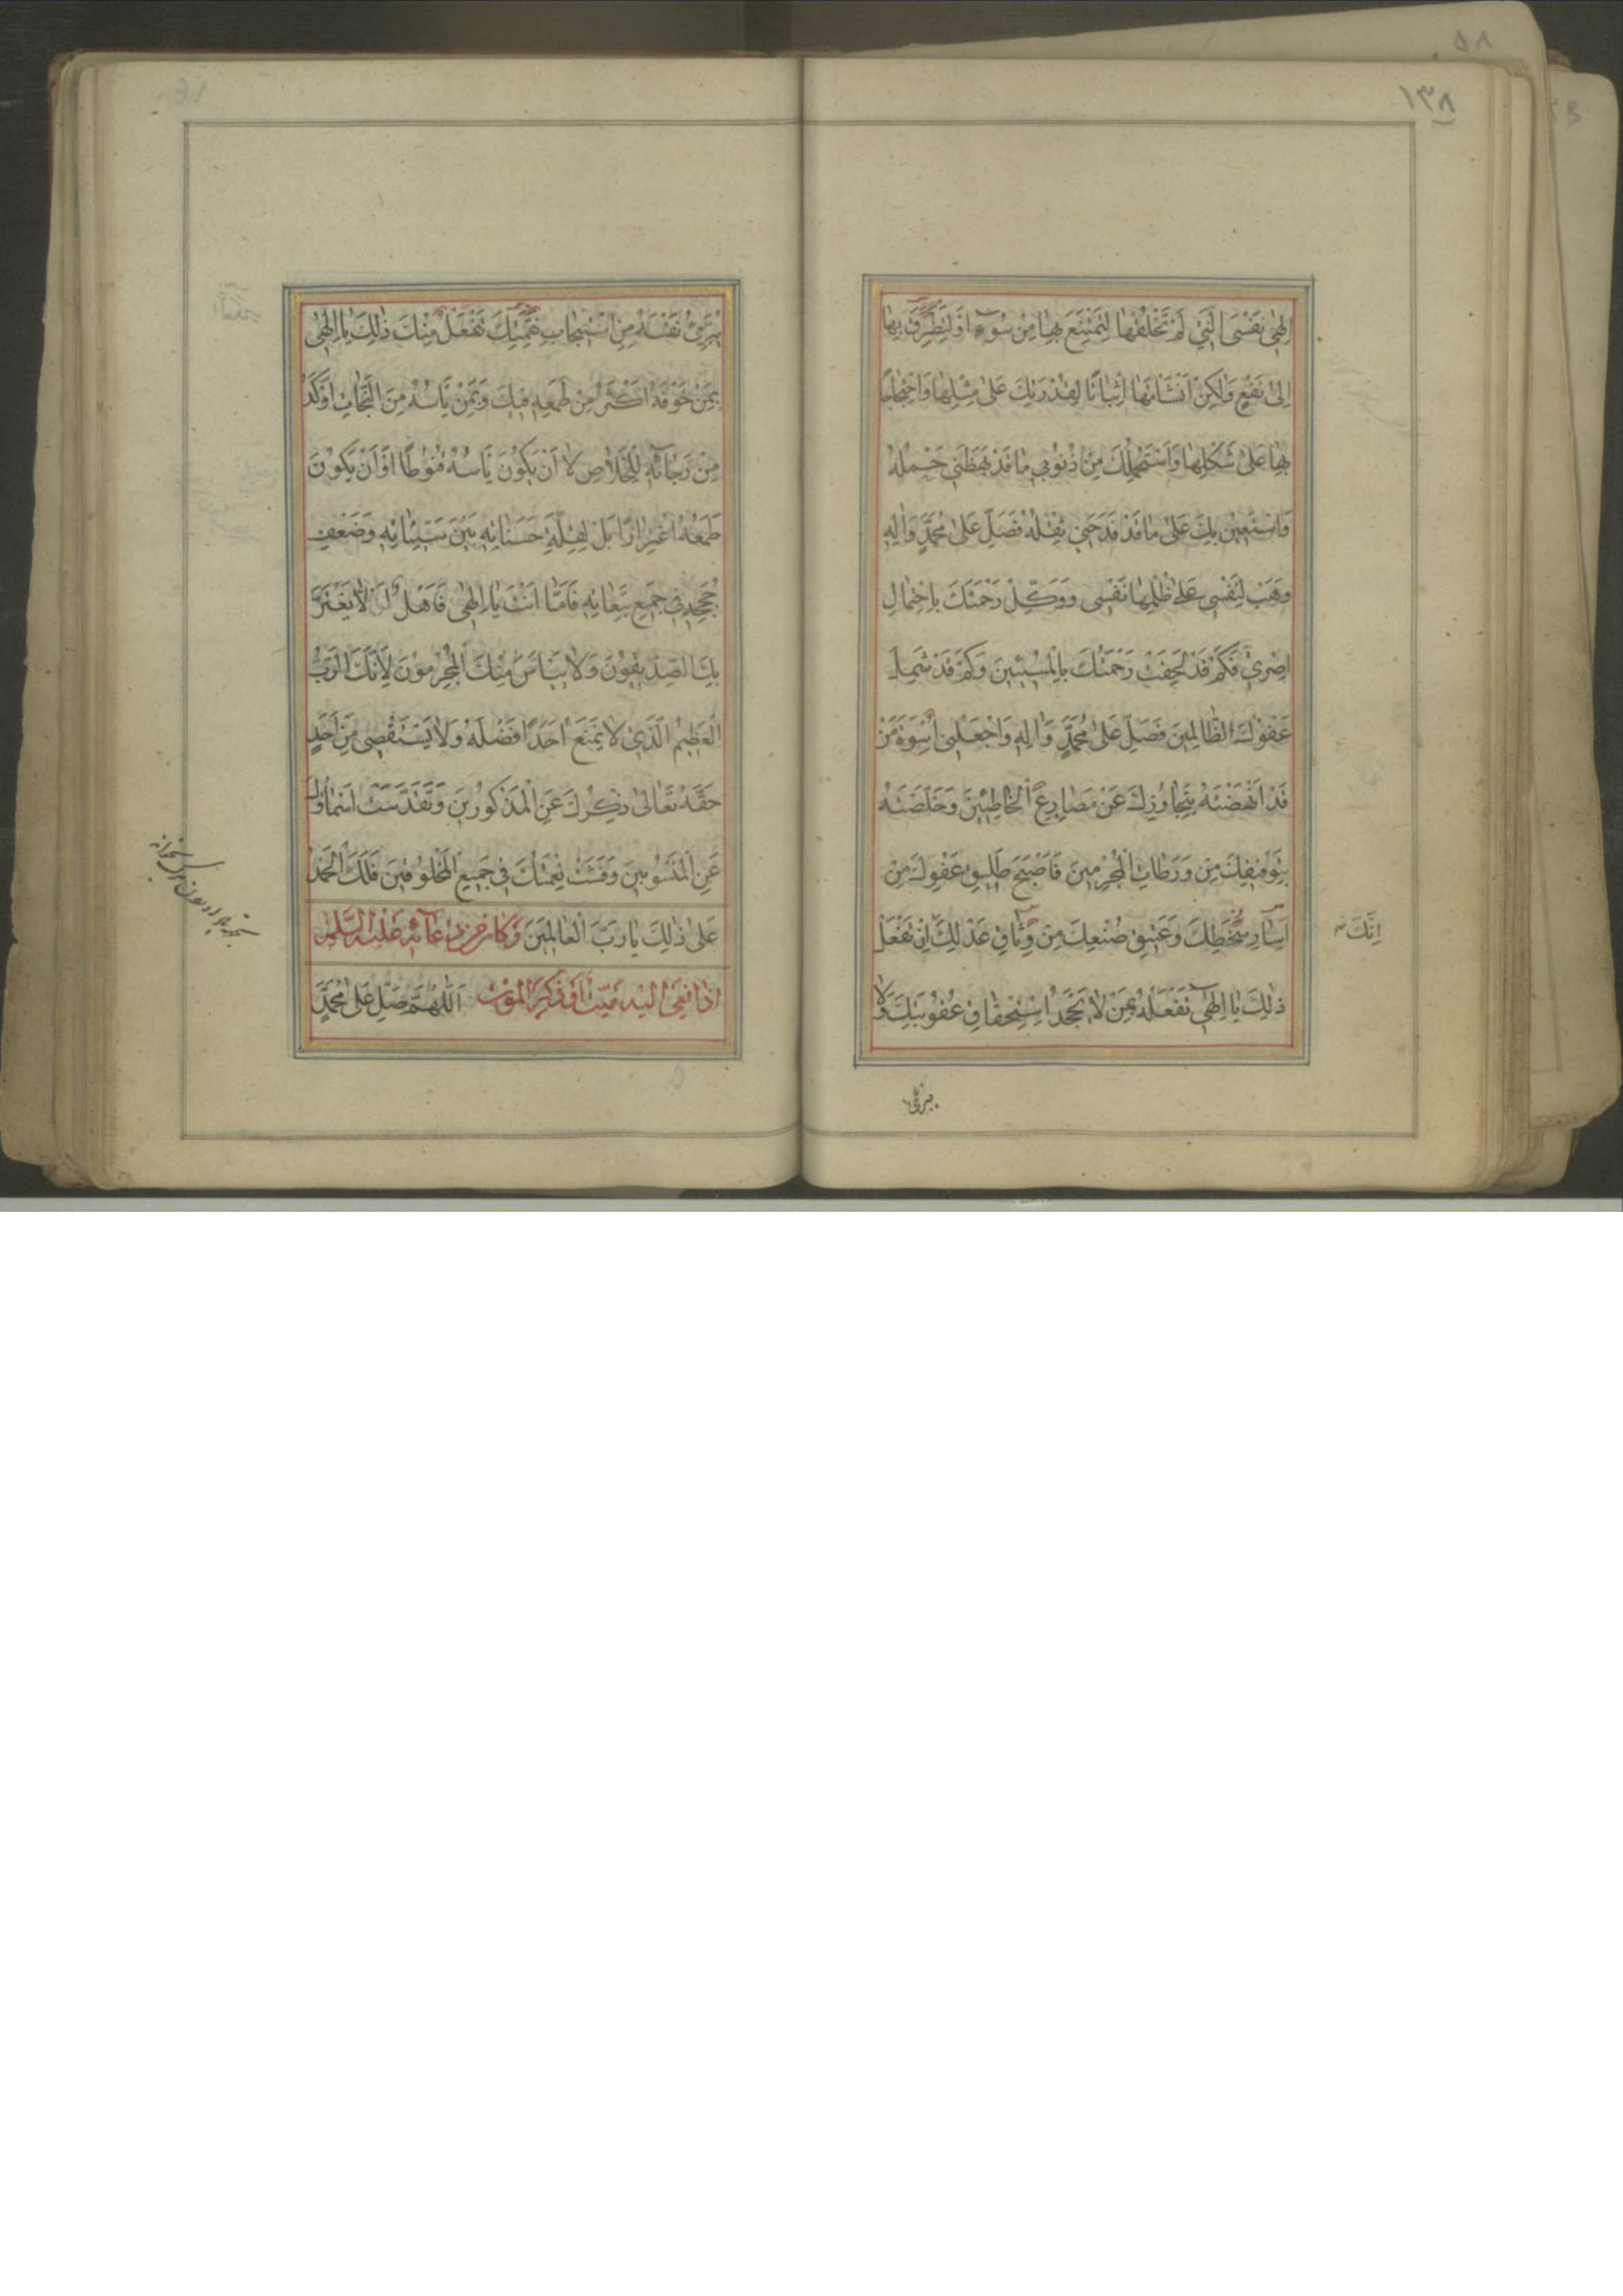 ١٣٨
اِلٰهِى نَفْسِىَ الَّتِى لَمْ تَخْلُقْهٰا لِتَمْتَنِعَ بِهٰا مِنْ سُوۤءٍ اَوْ لِتَطَرَّقَ بِهٰا
اِلىٰ نَفْعٍ وَلٰكِنْ اَنْشَأْتَهٰا اِثْبٰاتًا لِقُدْرَتِكَ عَلىٰ مِثْلِهٰا وَاحْتِجٰاجًا
بِهٰا عَلىٰ شَكْلِهٰا وَاَسْتَحْمِلُكَ مِنْ ذُنُوبِى مٰا قَدْ بَهَظَنِى حَمْلُهُ
وَاَسْتَعِينُ بِكَ عَلىٰ مٰا قَدْ فَدَحَنِى ثِقْلُهُ فَصَلِّ عَلىٰ مُحَمَّدٍ وَاٰلِهِ
وَهَبْ لِنَفْسِى عَلىٰ ظُلْمِهٰا نَفْسِى وَوَكِّلْ رَحْمَتَكَ بِاحْتِمٰالِ
اِصْرِى فَكَمْ قَدْ لَحِقَتْ رَحْمَتُكَ بِالْمُسِيئِينَ وَكَمْ قَدْ شَمِلَ
عَفْوُكَ الظّٰالِمِينَ فَصَلِّ عَلىٰ مُحَمَّدٍ وَاٰلِهِ وَاجْعَلْنِى اُسْوَةَ مَنْ
قَدْ اَنْهَضْتَهُ بِتَجٰاوُزِكَ عَنْ مَصٰارِعِ الْخٰاطِئِينَ وَخَلَّصْتَهُ
بِتَوْفِيقِكَ مِنْ وَرَطٰاتِ الْمُجْرِمِينَ فَاَصْبَحَ طَلِيقَ عَفْوِكَ مِنْ
اِسٰارِ سُخْطِكَ وَعَتِيقَ صُنْعِكَ مِنْ وَثٰاقِ عَدْلِكَ اِنْ تَفْعَلْ
اِنَّكَ
ذٰلِكَ يٰا اِلٰهِى تَفْعَلْهُ بِمَنْ لٰا يَجْحَدُ اسْتِحْقٰاقَ عُقُوبَتِكَ وَلٰا
يبرئ
يُبَرِّئُ نَفْسَهُ مِنِ اسْتِيجٰابِ نَقِمَتِكَ تَفْعَلْ مِنْكَ ذٰلِكَ يٰا اِلٰهِى
بِمَنْ خَوْفُهُ اَكْثَرُ مِنْ طَمَعِهِ فِيكَ وَبِمَنْ يَأْسُهُ مِنَ النَّجٰاتِ اَوْكَدُ
مِنْ رَجٰاۤئِهِ لِلْخَلٰاصِ لٰا اَنْ يَكُونَ يَأْسُهُ قُنُوطًا اَوْ اَنْ يَكُونَ
طَمَعُهُ اغْتِرٰارًا بَلْ لِقِلَّةِ حَسَنٰاتِهِ بَيْنَ سَيِّئٰاتِهِ وَضَعْفِ
حُجَجِهِ فِى جَمِيعِ تَبِعٰاتِهِ فَاَمّٰا اَنْتَ يٰا اِلٰهِى فَاَهْلٌ اَنْ لٰا يَغْتَرَّ
بِكَ الصِّدِّيقُونَ وَلٰا يَيْأَسَ مِنْكَ الْمُجْرِمُونَ لِاَنَّكَ الرَّبُّ
الْعَظِيمُ الَّذِى لٰا يَمْنَعُ اَحَدًا فَضْلَهُ وَلٰا يَسْتَقْصِى مِنْ اَحَدٍ
حَقَّهُ تَعٰالىٰ ذِكْرُكَ عَنِ الْمَذْكُورِينَ وَتَقَدَّسَتْ اَسْمٰاؤُكَ
عَنِ الْمَنْسُوبِينَ وَفَشَتْ نِعْمَتُكَ فِى جَمِيعِ الْمَخْلُوقِينَ فَلَكَ الْحَمْدُ
عَلىٰ ذٰلِكَ يٰا رَبَّ الْعٰالَمِينَ وَكٰانَ مِنْ دُعٰاۤئِهِ عَلَيْهِ السَّلٰمُ
اِذٰا نُعِىَ اِلَيْهِ مَيِّتٌ اَوْ ذَكَرَ الْمَوْتَ اَللّٰهُمَّ صَلِّ عَلىٰ مُحَمَّدٍ